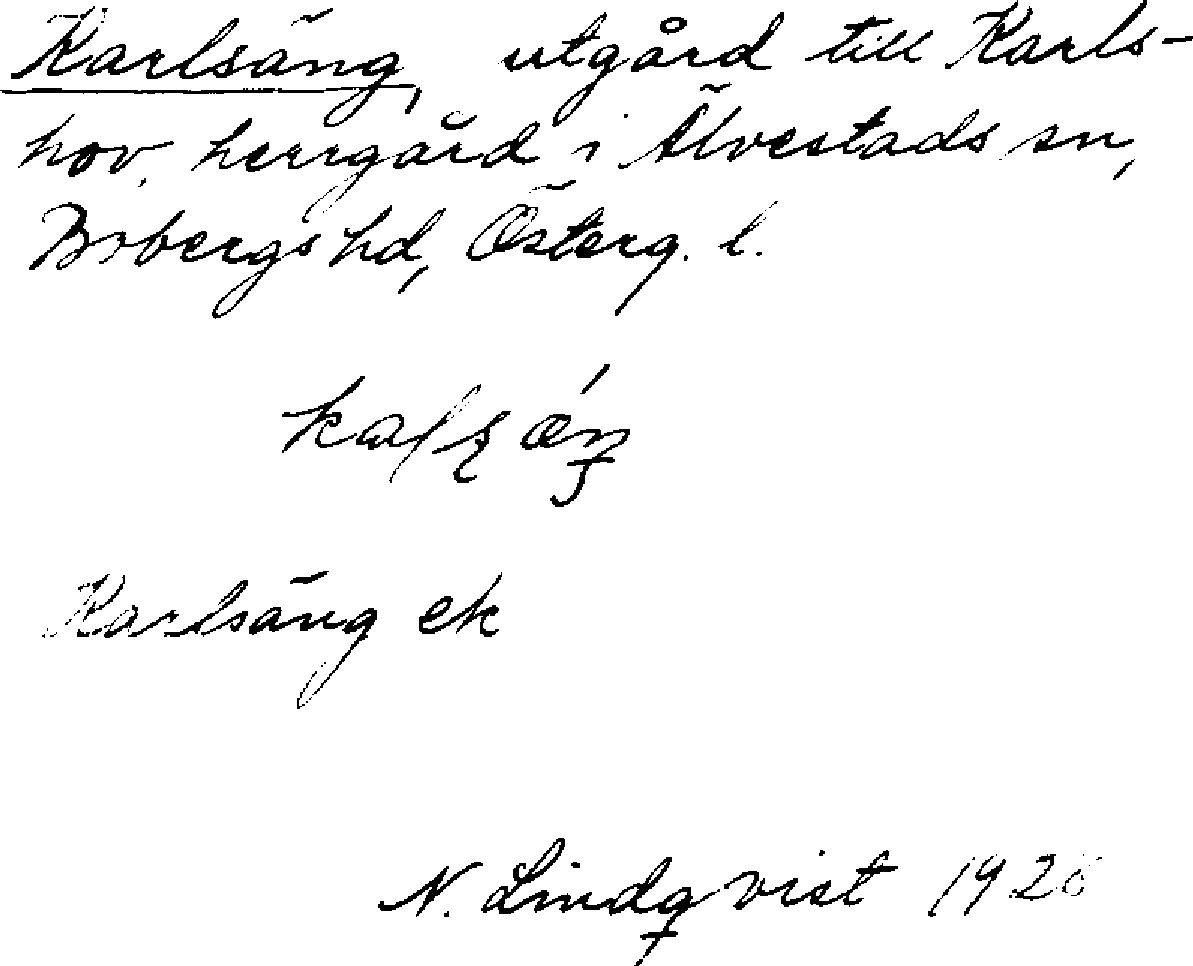 Karlsäng, utgård till Karls-
hov, herrgård i Älvestads sn,
Bobergs hd, Österg. l.
Karlsäng ek
N. Lindqvist 1928